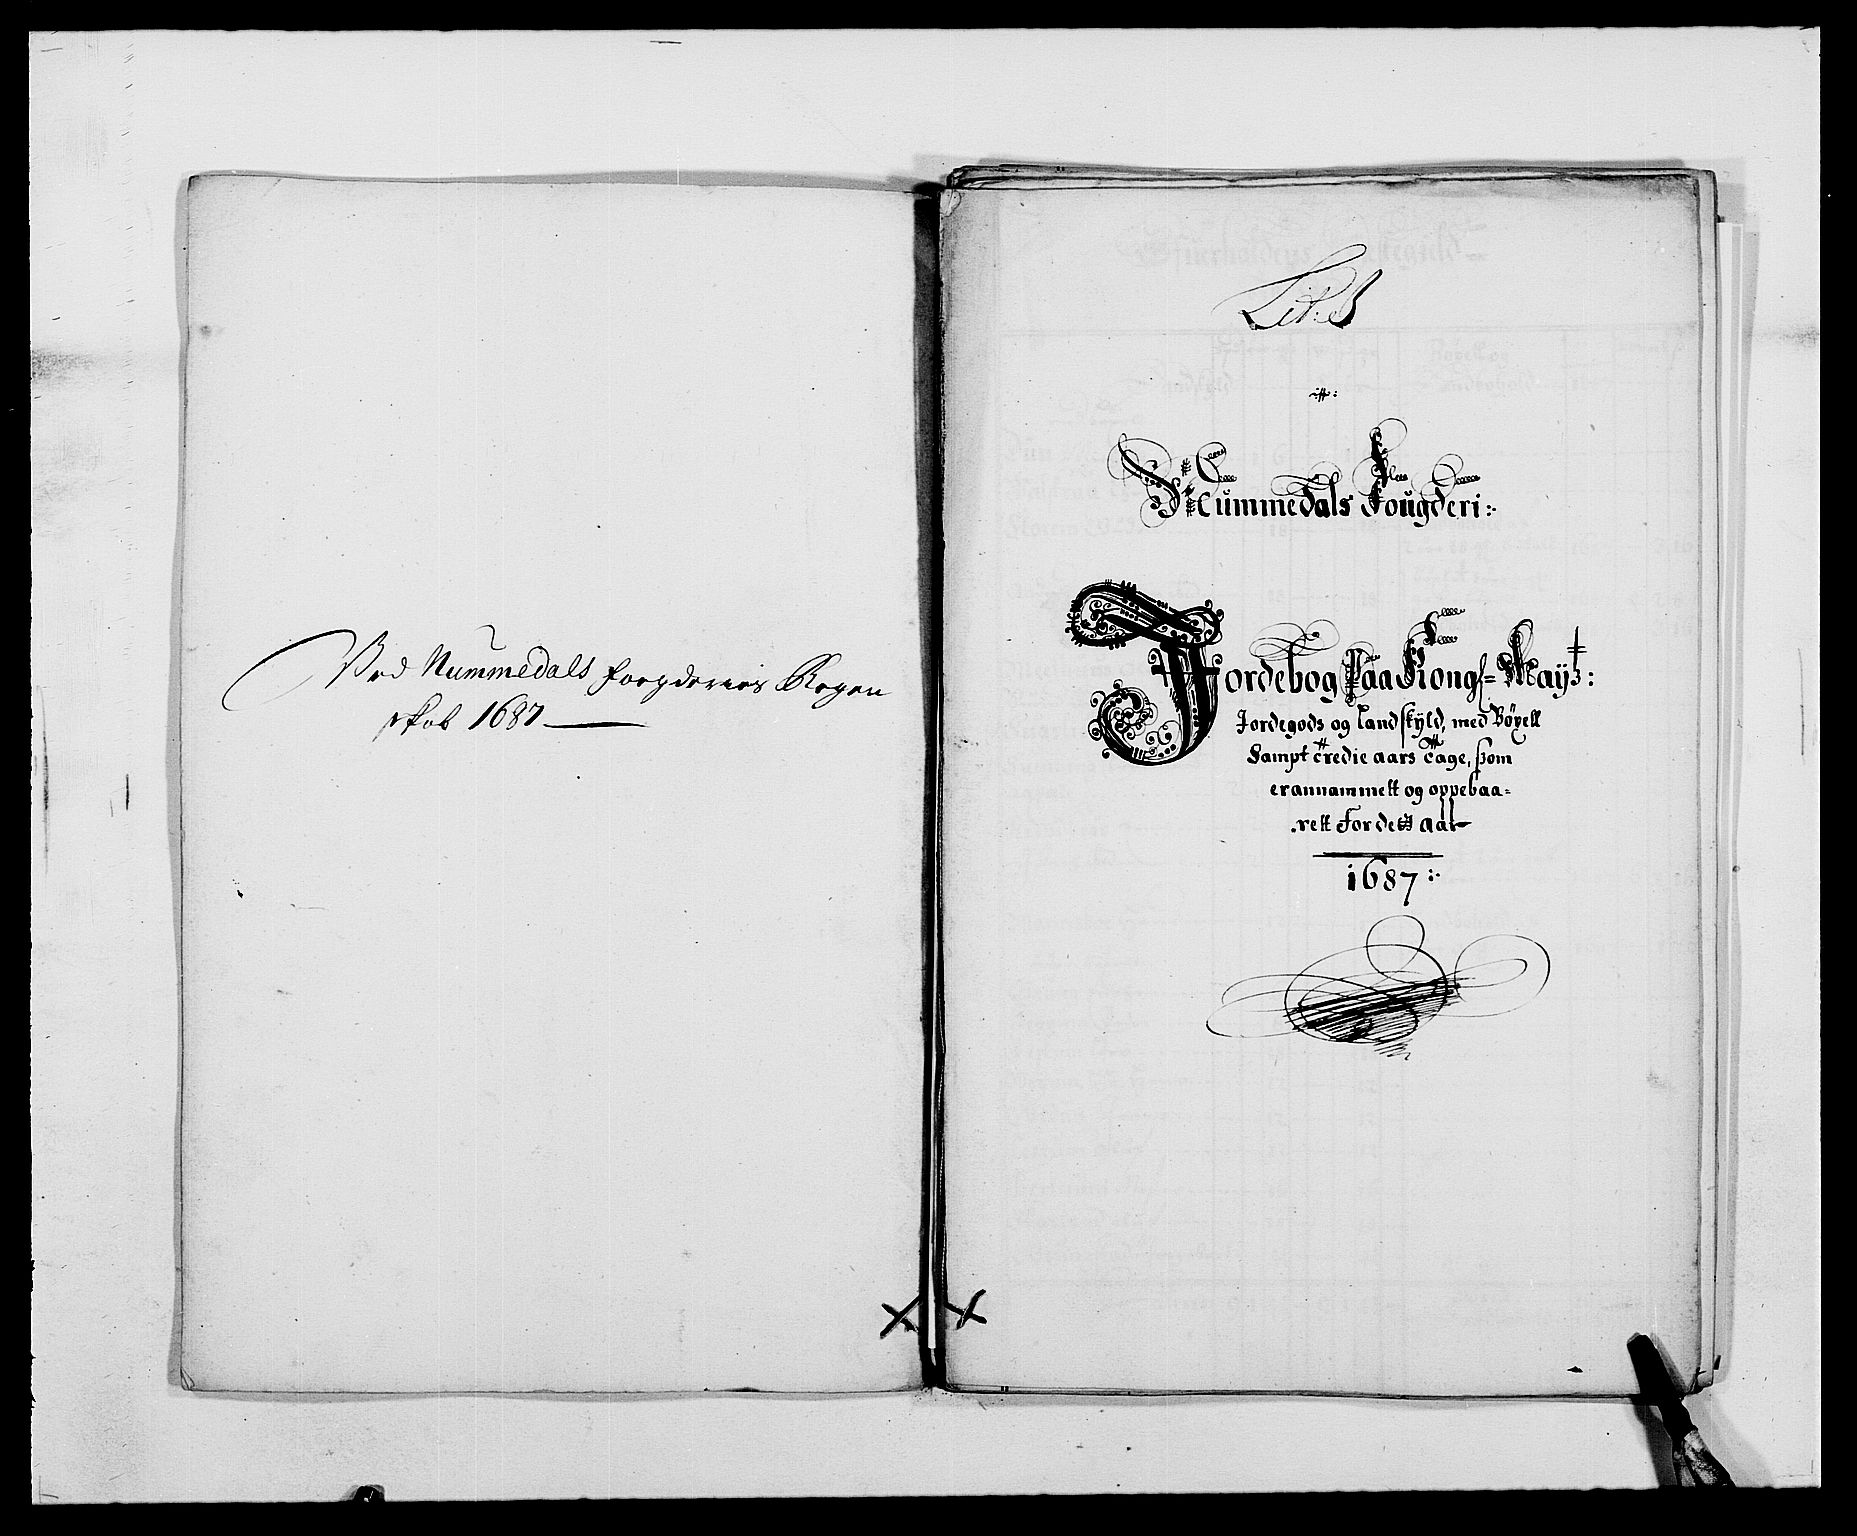 Ved Nummedals fougderies Regen
skab 1687
Nummedals Fougderi:
Jordebog Paa Kongl= Mayts:
Jordegods og Landskyld, med Böxell
Sampt Tredie aars Tage, som
er annammett og oppebaa=
rett for dette aar
1687